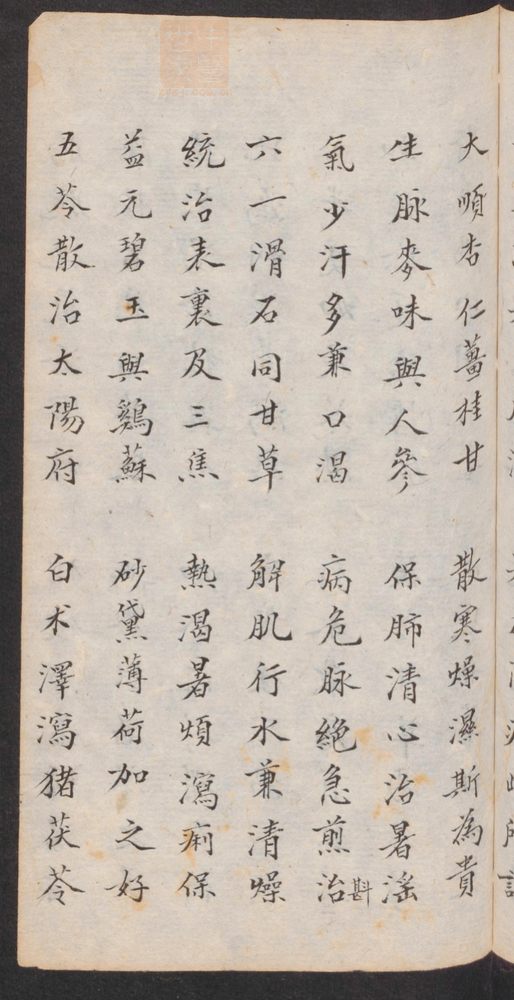 大順杏仁薑桂甘　散寒燥濕斯為貴
生脉麥味與人參　保肺清心治暑淫
氣少汗多兼口渴　病危脉絕急煎斟治
六一滑石同甘草　解肌行水兼清燥
統治表裏及三焦　熱渴暑煩瀉痢保
益元碧玉與鷄蘇　砂黛薄荷加之好
五苓散治太陽府　白术澤瀉猪茯苓